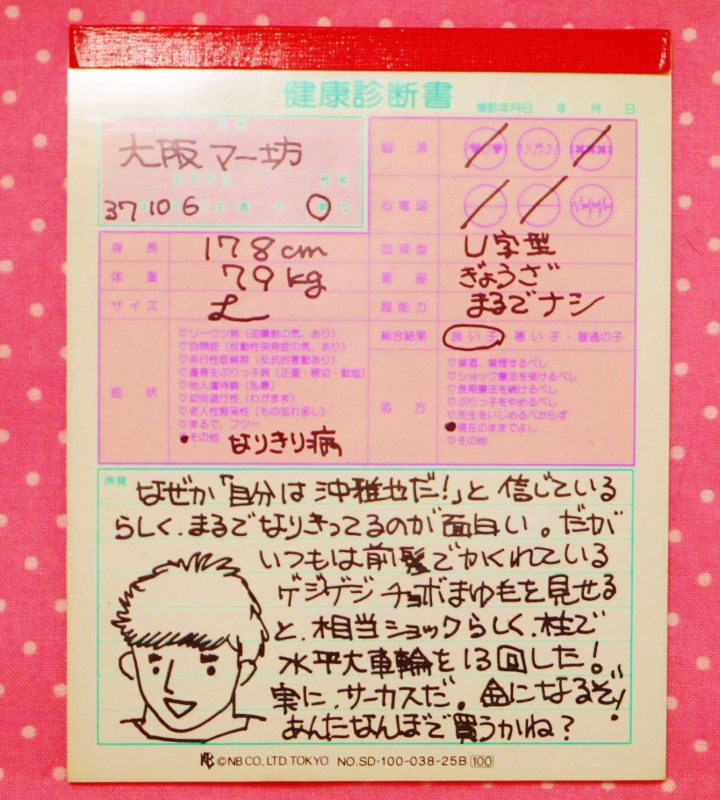 健康診断書
検診年月日　年　月　日
大阪マー坊
37 10 6
脳波
心電図
身長 178cm
体重 79kg
サイズ L
血液型 U字型
星座 ぎょうざ
超能力 まるでナシ
総合結果 良い子・悪い子・普通の子
症状
♡ソーウツ病（逆噴射の気、あり）
♡自閉症（反動性突発症の気、あり）
♡非行性症候群（反抗的言動あり）
♡優等生ぶりっ子病（正直・親切・勤勉）
♡他人虐待癖（乱暴）
♡幼児退行性（わがまま）
♡老人性痴呆性（もの忘れ多し）
♡まるで、フツー
その他 なりきり病
処方
♡禁酒、禁煙するべし
♡ショック療法を受けるべし
♡長期療法を続けるべし
♡ぶりっ子をやめるべし
♡先生をいじめるべからず
現在のままでよし
♡その他
所見
なぜか「自分は沖雅也だ！」と信じている
らしく、まるでなりきってるのが面白い。だが
いつもは前髪でかくれている
ゲジゲジチョボまゆ毛を見せる
と、相当ショックらしく、柱で
水平大車輪を13回した！
実に、サーカスだ。金になるぞ！
あんたなんぼで買うかね？
©NB CO., LTD. TOKYO NO.SD-100-038-25B 100